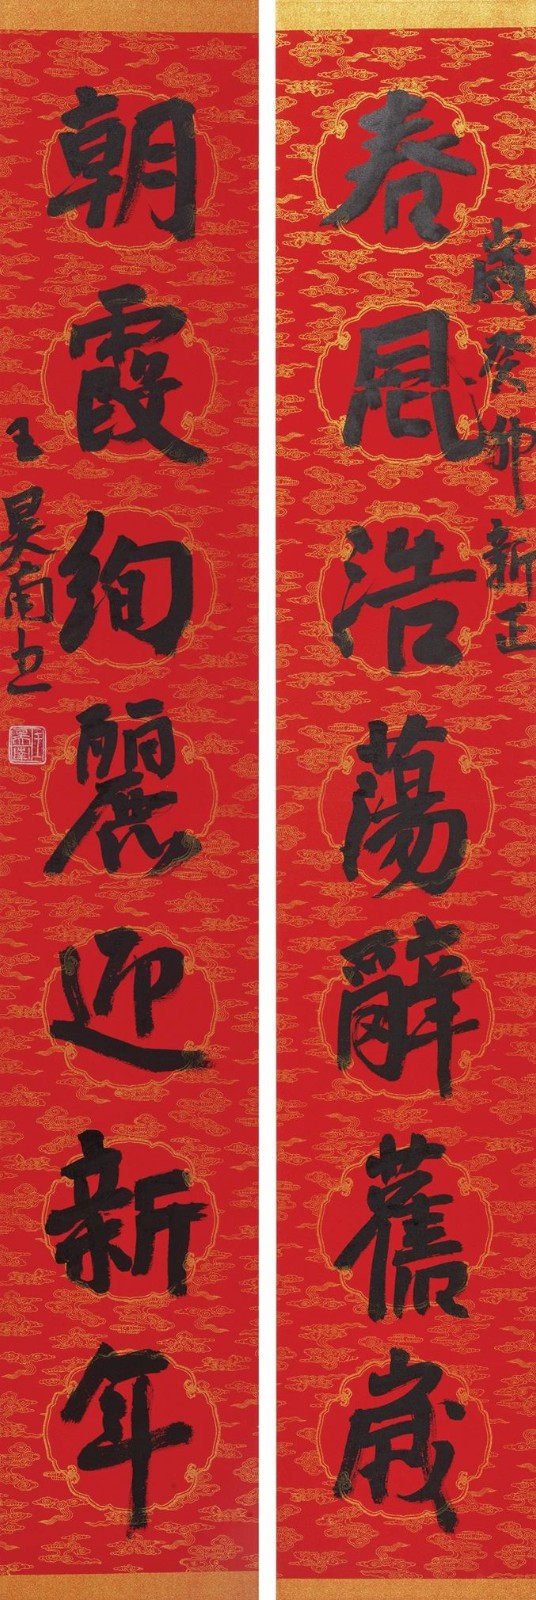 春風浩蕩辭舊歲
歲癸卯新正
朝霞絢麗迎新年
王昊南書